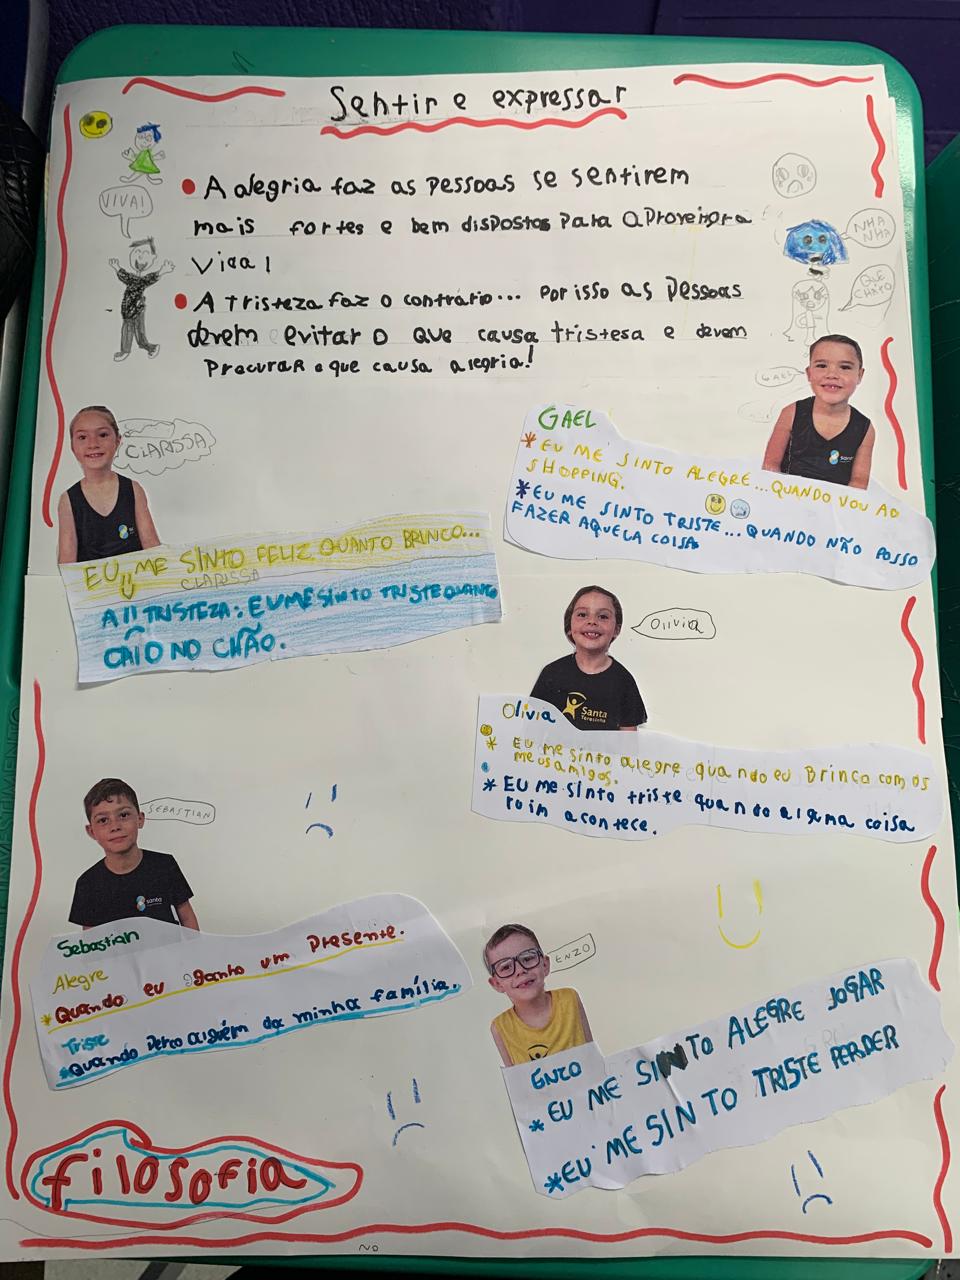 Sentir e expressar
VIVA!
• A alegria faz as pessoas se sentirem
mais fortes e bem dispostos para aproveitar a
vida!
• A tristeza faz o contrário... por isso as pessoas
devem evitar o que causa tristesa e devem
procurar o que causa alegria!
NHA
NHA
QUE
CHATO
GAEL
CLARISSA
GAEL
* EU ME SINTO ALEGRE... QUANDO VOU AO
SHOPPING.
* EU ME SINTO TRISTE... QUANDO NÃO POSSO
FAZER AQUELA COISA
EU ME SINTO FELIZ QUANTO BRINCO...
CLARISSA
A TRISTEZA: EU ME SINTO TRISTE QUANTO
CAIO NO CHÃO.
Olivia
Santa
Teresinha
Olivia
* EU me sinto alegre quando eu Brinca com os
meus amigos.
* EU me sinto triste quando alguma coisa
ruim acontece.
SEBASTIAN
santa
Sebastian
Alegre
* Quando eu ganho um presente.
Triste
* Quando perco alguém da minha família.
ENZO
ENZO
* EU ME SINTO ALEGRE JOGAR
* EU ME SINTO TRISTE PERDER
filosofia
NO